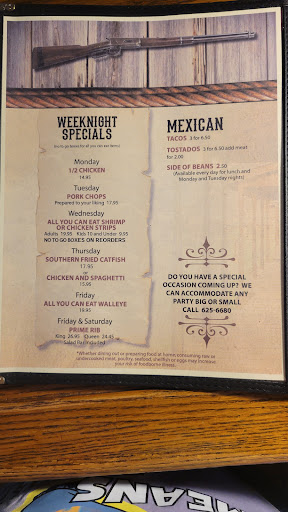 WEEKNIGHT
SPECIALS
Monday
1/2 CHICKEN
14.95
Tuesday
PORK CHOPS
Prepared to your liking 17.95
Wednesday
ALL YOU CAN EAT SHRIMP
OR CHICKEN STRIPS
Adults 19.95 Kids 10 and Under 9.95
NO TO GO BOXES ON REORDERS
Thursday
SOUTHERN FRIED CATFISH
17.95
or
CHICKEN AND SPAGHETTI
15.95
Friday
ALL YOU CAN EAT WALLEYE
19.95
Friday & Saturday
PRIME RIB
King 26.95 Queen 24.45
Salad Bar Included
MEXICAN
TACOS 3 for 6.50
TOSTADOS 2 for 6.50 add meat
for 2.00
SIDE OF BEANS 2.50
(Available every day for lunch and
Monday and Tuesday nights)
DO YOU HAVE A SPECIAL
OCCASION COMING UP? WE
CAN ACCOMMODATE ANY
PARTY BIG OR SMALL
CALL 625-6680
*Whether dining out or preparing food at home, consuming raw or
undercooked meat, poultry, seafood, shellfish or eggs may increase
your risk of foodborne illness.
MEANS